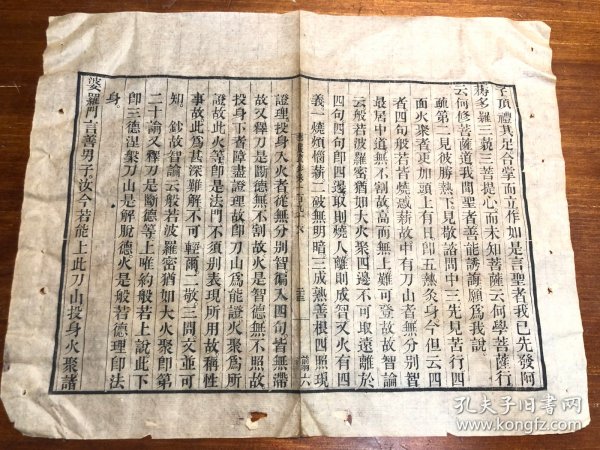 子頂禮其足合掌而立作如是言聖者我已先發阿
耨多羅三藐三菩提心而未知菩薩云何學菩薩行
云何修菩薩道我聞聖者善能誘誨願爲我說
疏第二見彼勝熱下見敬諮問中三先見苦行四
面火聚者更加頭上有日卽五熱炙身今但云四
者四句般若皆燒惑薪故中有刀山者無分別智
最居中道無不割故高而無上難可登故故智論
云般若波羅密猶如大火聚四邊不可取遠離於
四句四句卽四邊取則燒人離則成智又火有四
義一燒煩惱薪二破無明暗三成熟善根四照現
證理投身入火者從無分別智徧入四句皆無滯
故又釋刀是斷德無不割故火是智德無不照故
投身下者障盡證理故卽刀山爲能證火聚爲所
證故此火等卽是法門不須別表現所用故稱性
事故此爲甚深難解不可輕爾二敬三問文並可
知 鈔故智論云般若波羅密猶如大火聚卽第
二十諭又釋刀是斷德等上唯約般若上說此下
卽三德涅槃刀山是解脫德火是般若德理卽法
身
婆羅門言善男子汝今若能上此刀山投身火聚諸
孔夫子旧书网
www.kongfz.com